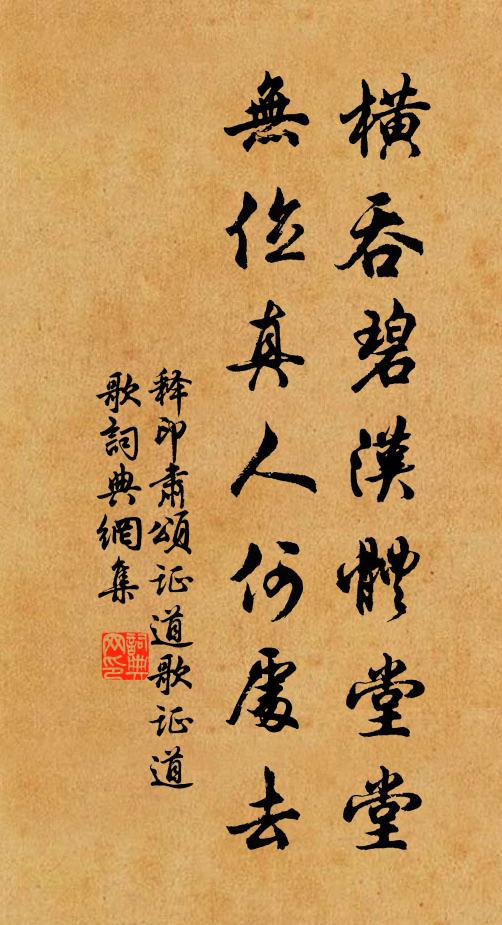 橫吞碧漢體堂堂
無位真人何處去
释印肅頌证道歌证道
歌詞典網集
詞典
网印